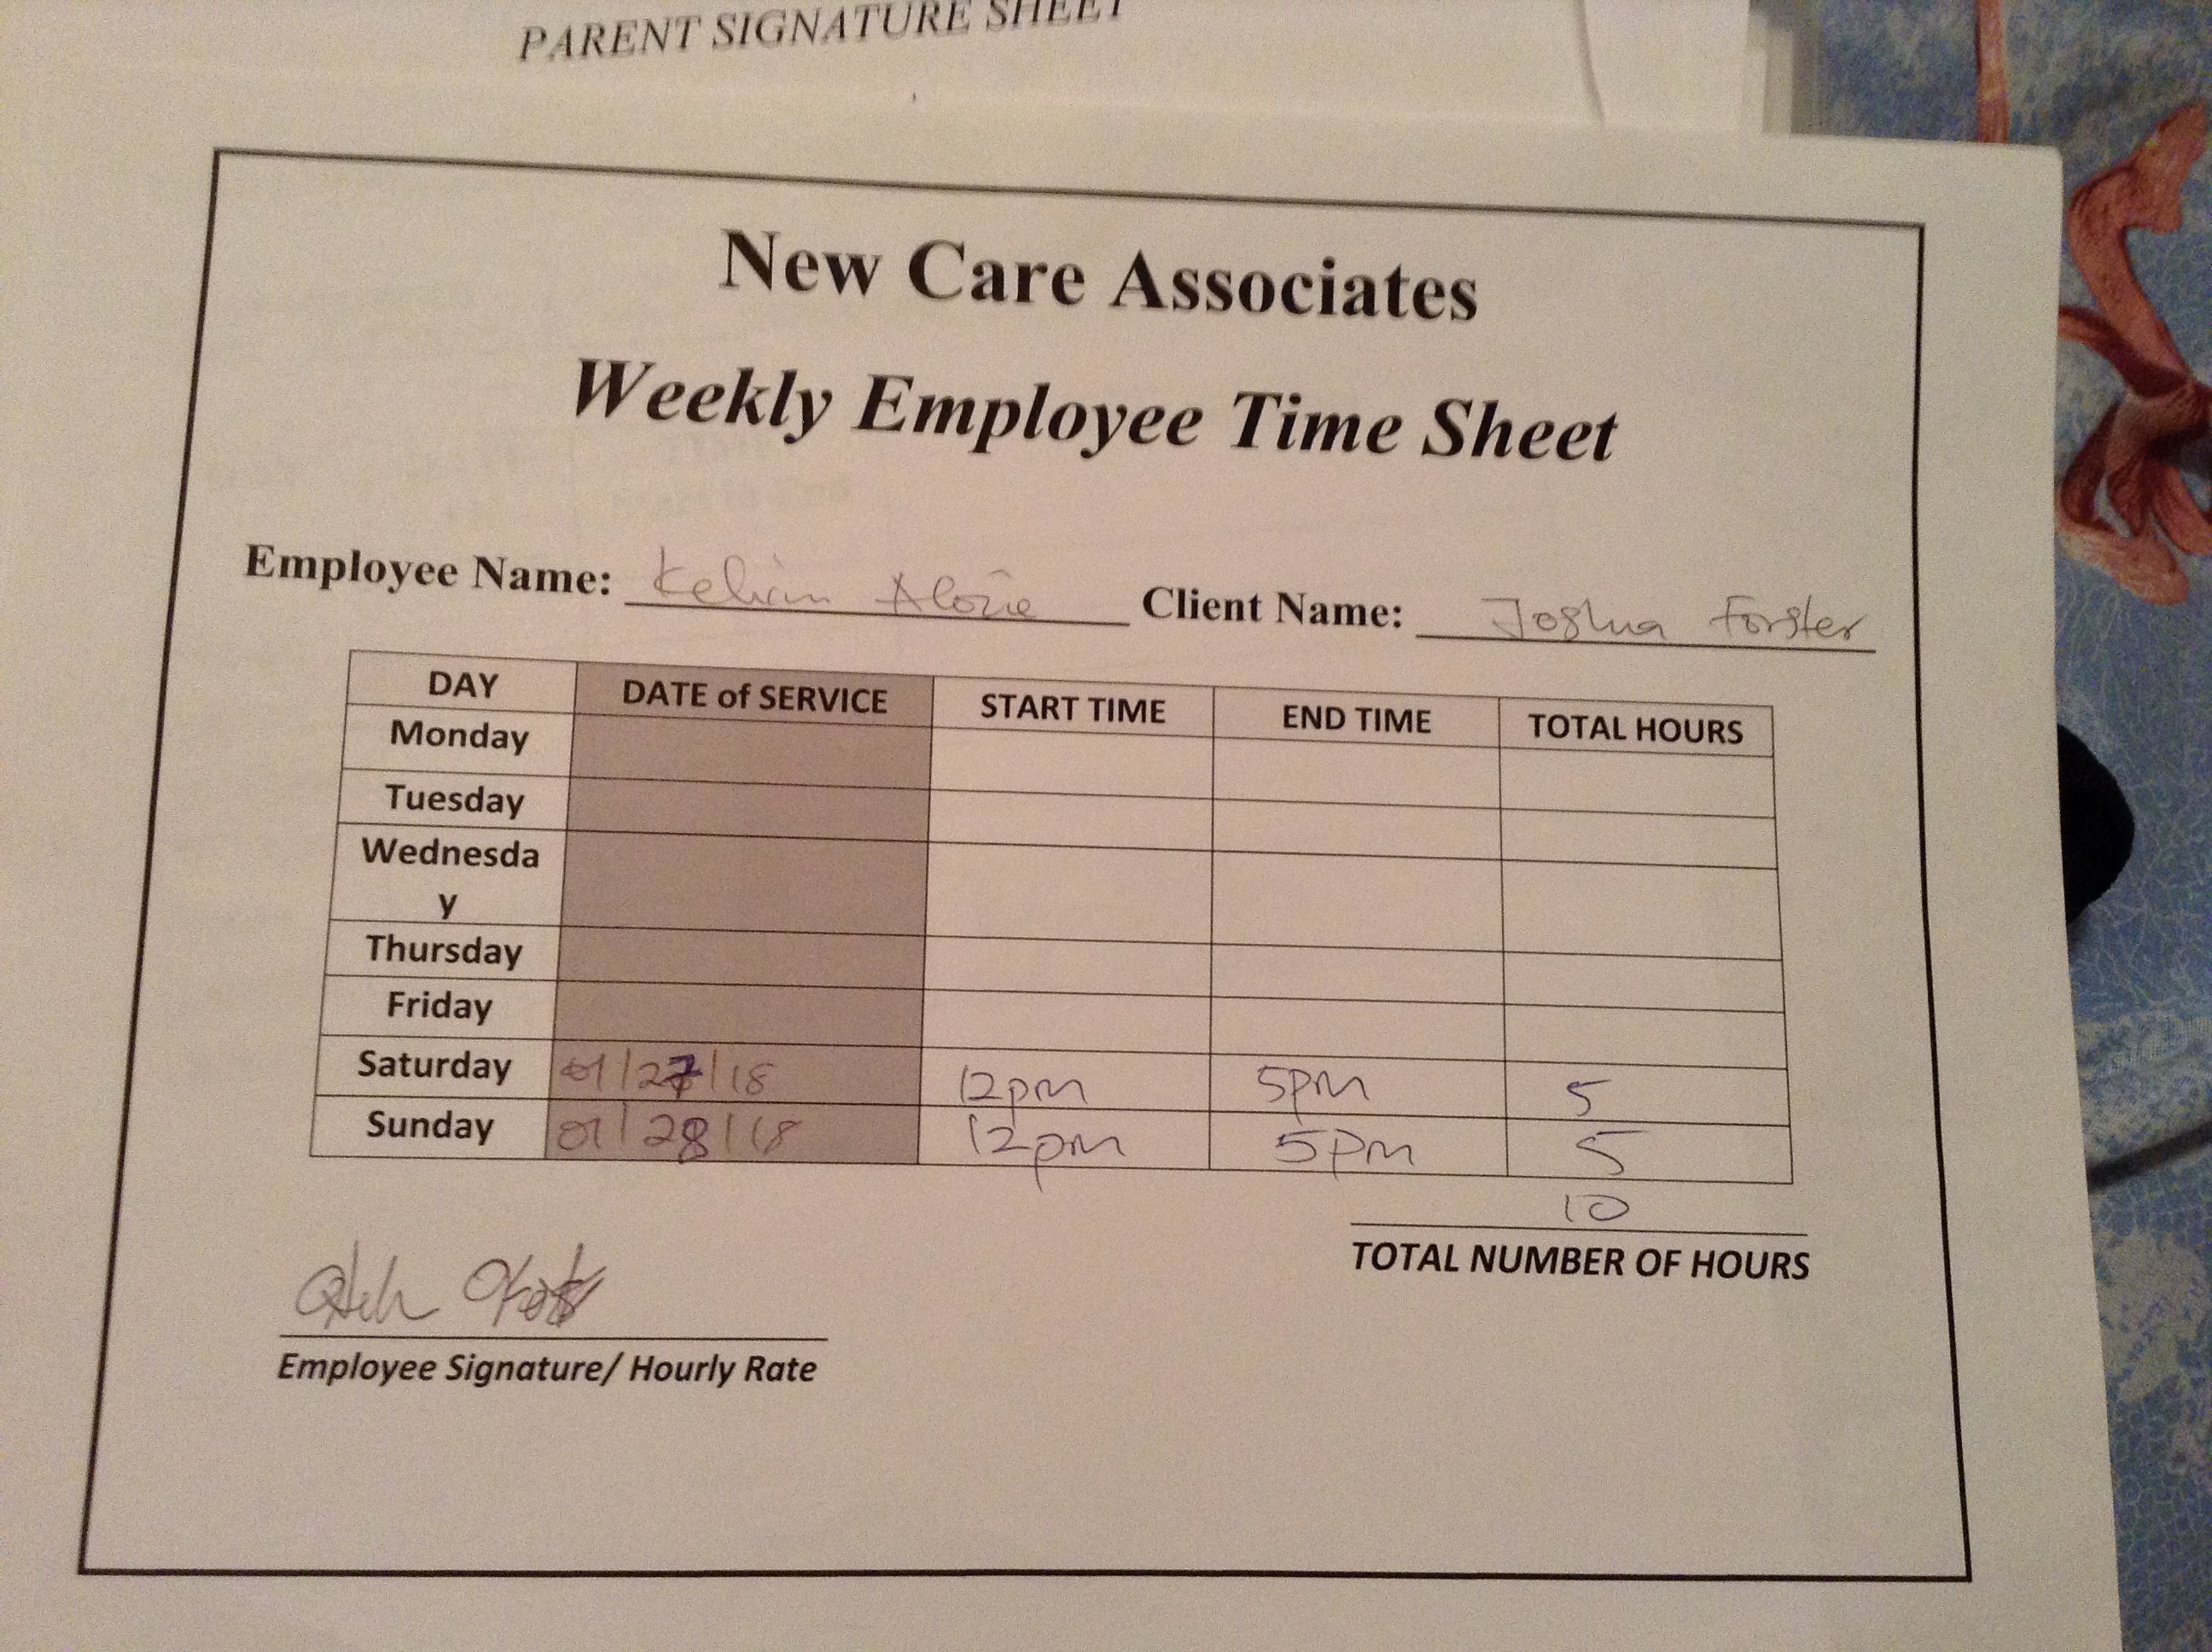 PARENT SIGNATURE SHEET
New Care Associates
Weekly Employee Time Sheet
Employee Name: Kelvin Alozie Client Name: Joshua Forster
DAY DATE of SERVICE START TIME END TIME TOTAL HOURS
Monday
Tuesday
Wednesda
y
Thursday
Friday
Saturday 01/27/18 12pm 5pm 5
Sunday 01/28/18 12pm 5pm 5
10
TOTAL NUMBER OF HOURS
Employee Signature/ Hourly Rate